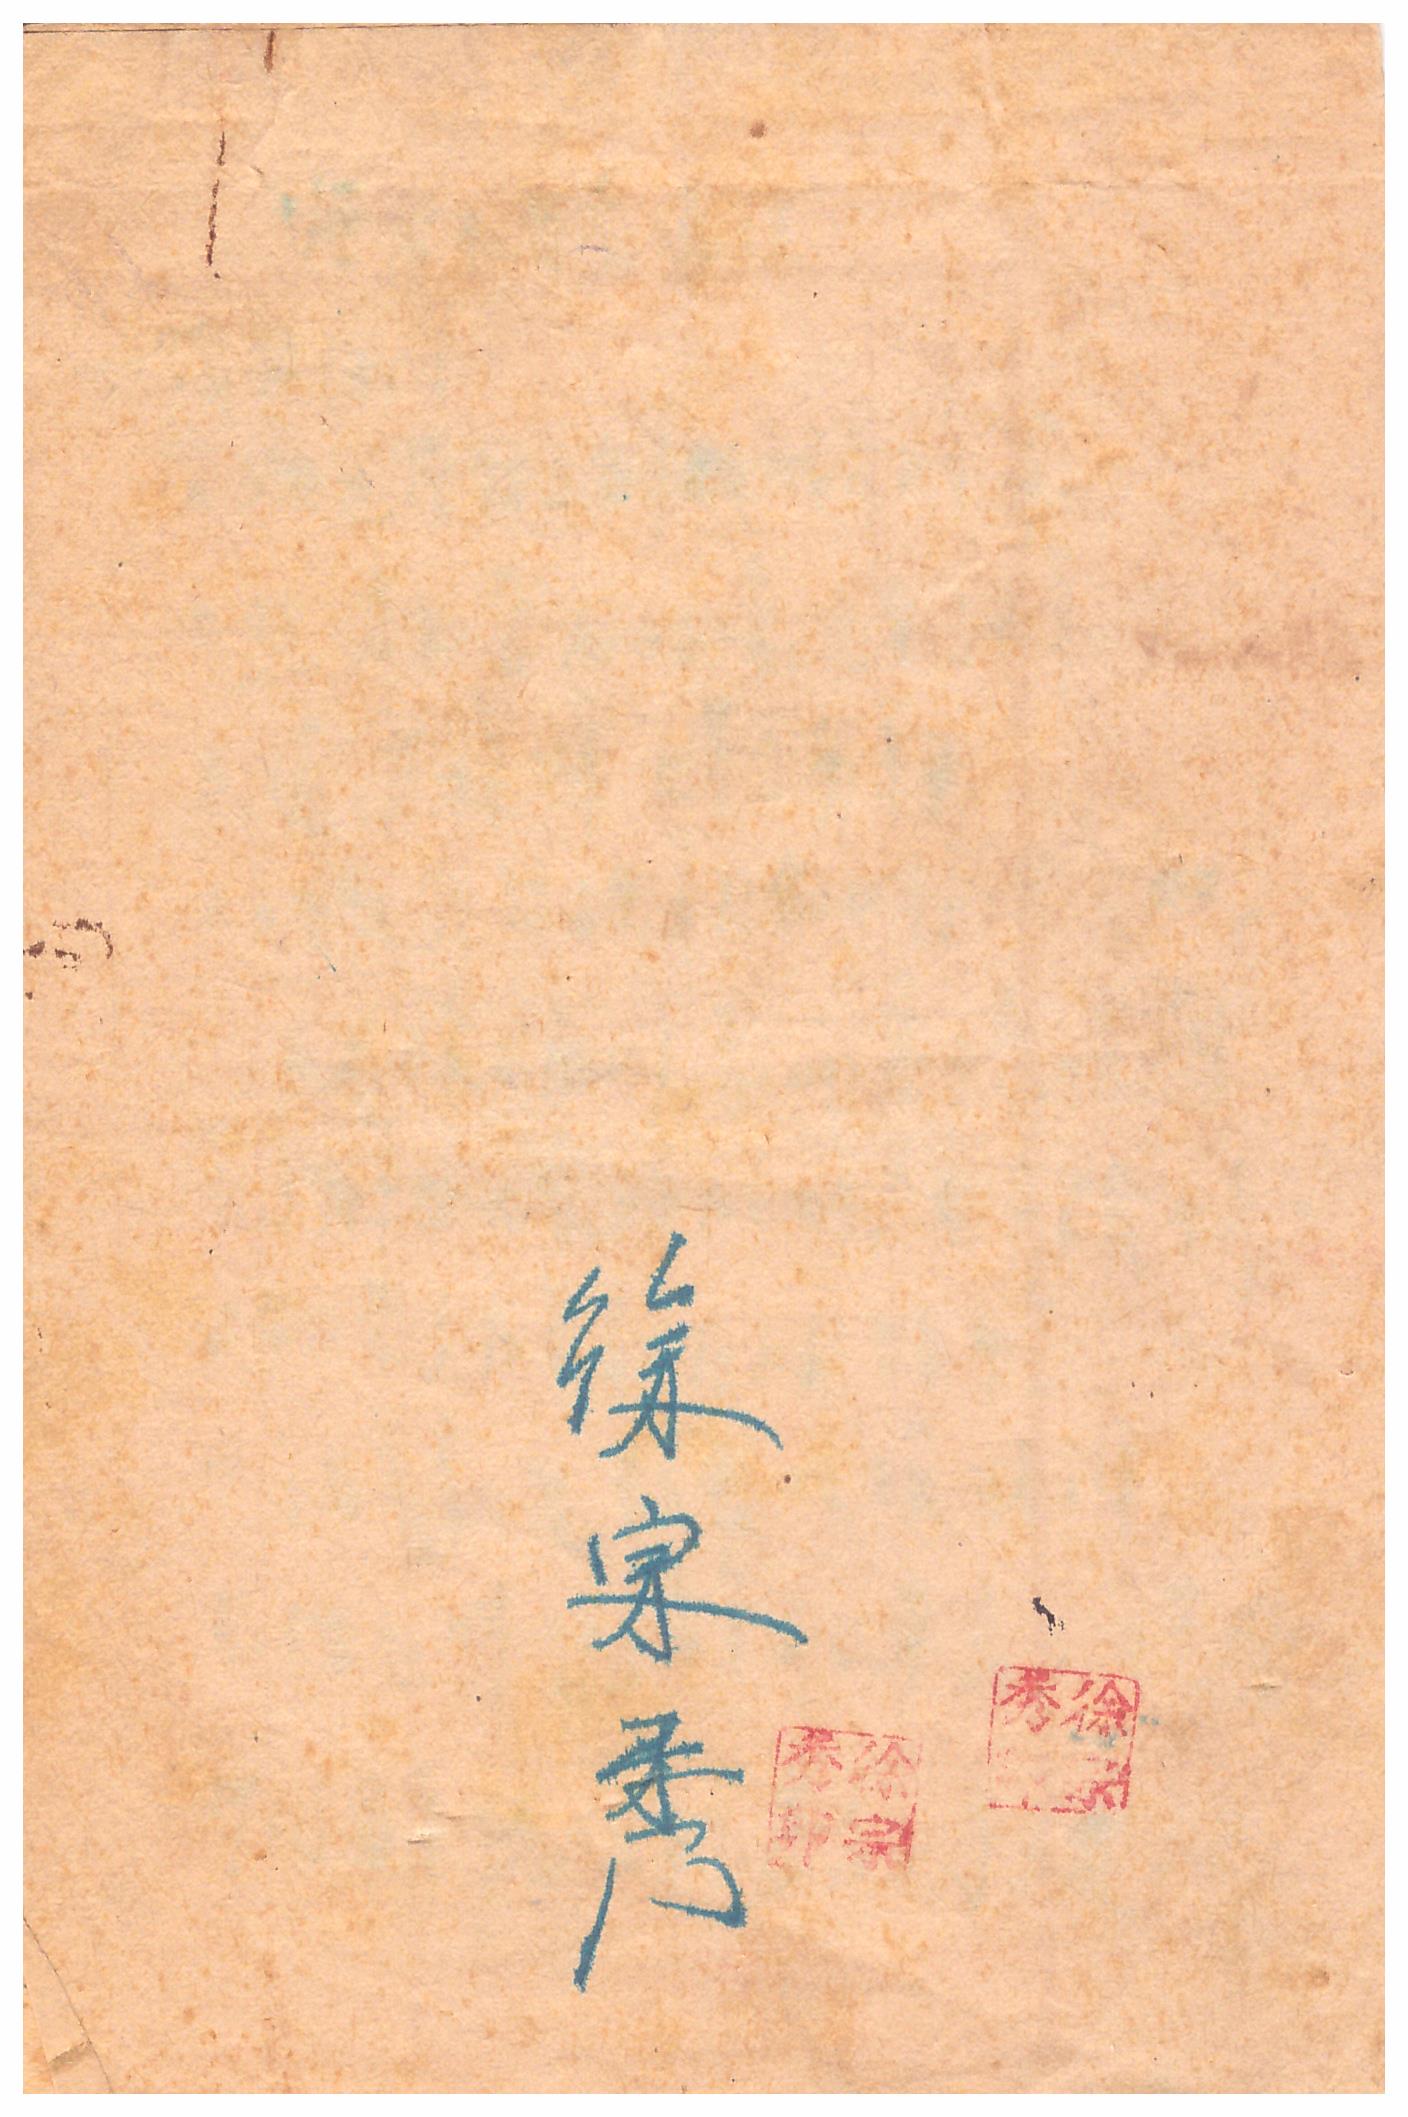 徐宗秀
徐宗
秀印
徐宗
秀